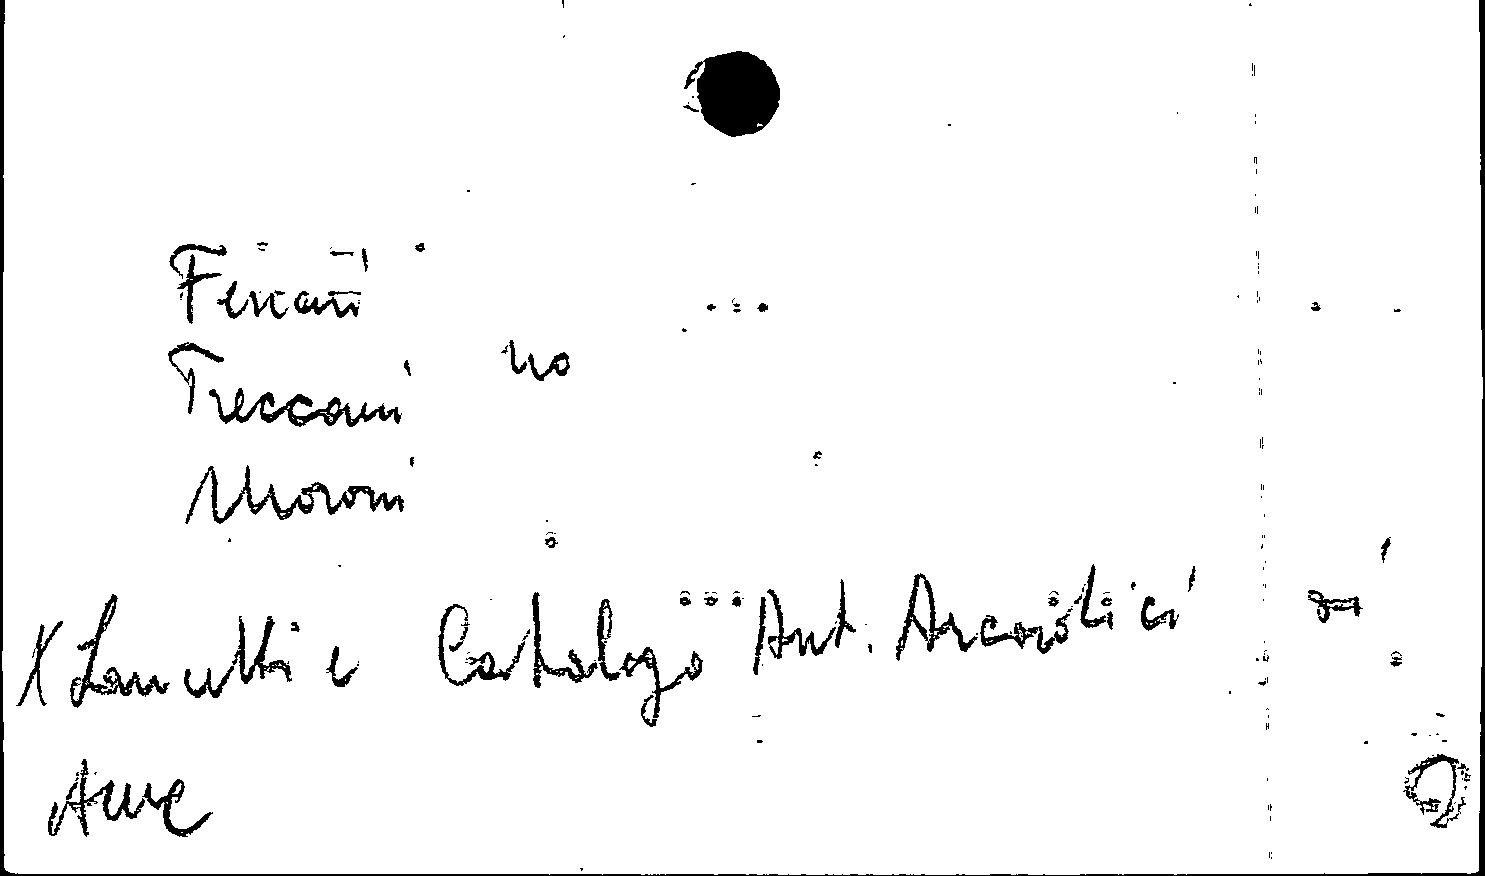 Ferrari
Treccani no
Moroni
X Lancetti e Catalogo Ant. Arcadici